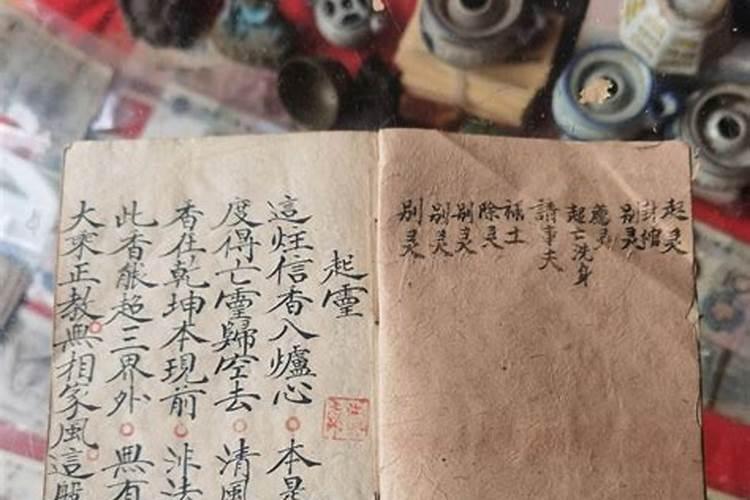 起灵
封棺
别灵
薦灵
起亡洗身
請事夫
禒土
除灵
别灵
别灵
别灵
起靈
這炷信香入爐心 本是
度得亡靈歸空去 清風
香在乾坤本現前 非法
此香能超三界外 無有
大乘正教無相家風這殷